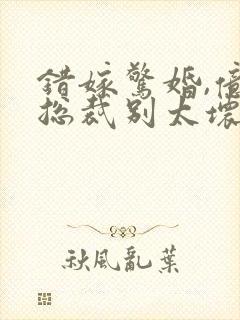 錯嫁驚婚,億
總裁別太壞
秋風亂葉